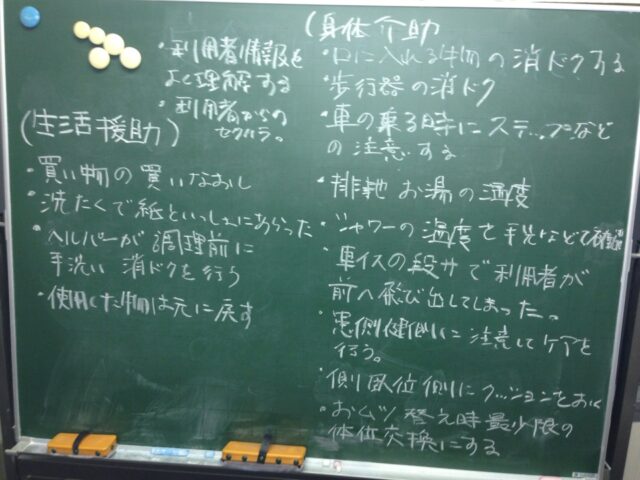 ・利用者情報を
よく理解する
・利用者からの
セクハラ。
(生活援助)
・買い物の買いなおし
・洗たくで紙といっしょにあらった
・ヘルパーが調理前に
手洗い 消ドクを行う
・使用した物は元に戻す
(身体介助
・口に入れる物の消ドクする
・歩行器の消ドク
・車の乗る時にステップなど
の注意する
・排泄 お湯の温度
・シャワーの温度を手洗などで確認
・車イスの段サで利用者が
前へ飛び出してしまったっ
・患側健側に注意してケアを
行う。
・側臥位側にクッションをおく
・おムツ替え時最少限の
体位交換にする